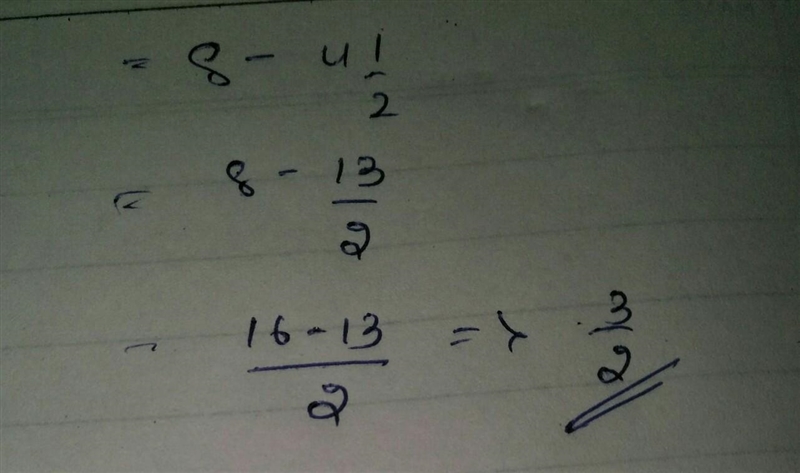 = 8 - 4 1/2
= 8 - 13/2
- 16-13/2 => 3/2